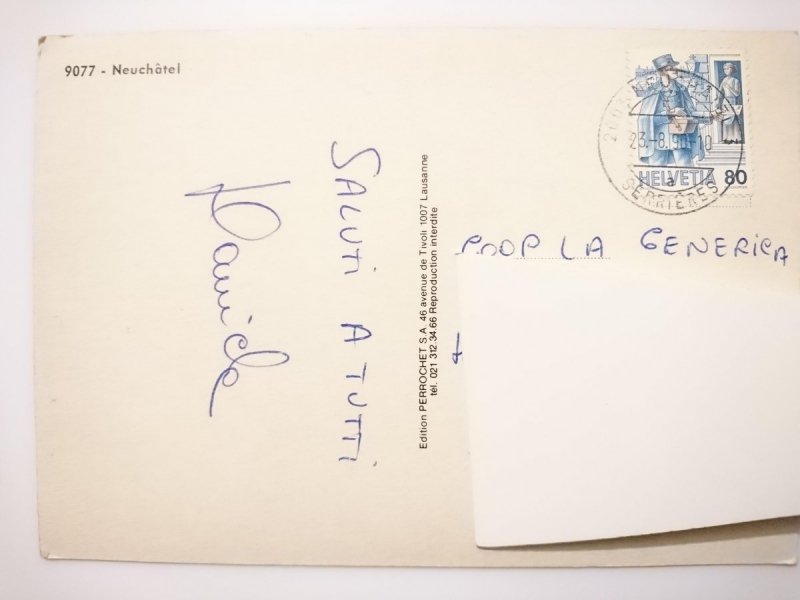 9077 - Neuchâtel
SALUTI A TUTTI
Daniele
Edition PERROCHET S.A. 46 avenue de Tivoli 1007 Lausanne
tél. 021 312.34.66 Reproduction interdite
23.-8.90-10
a
SERRIÈRES
HELVETIA 80
COOP LA GENERICA